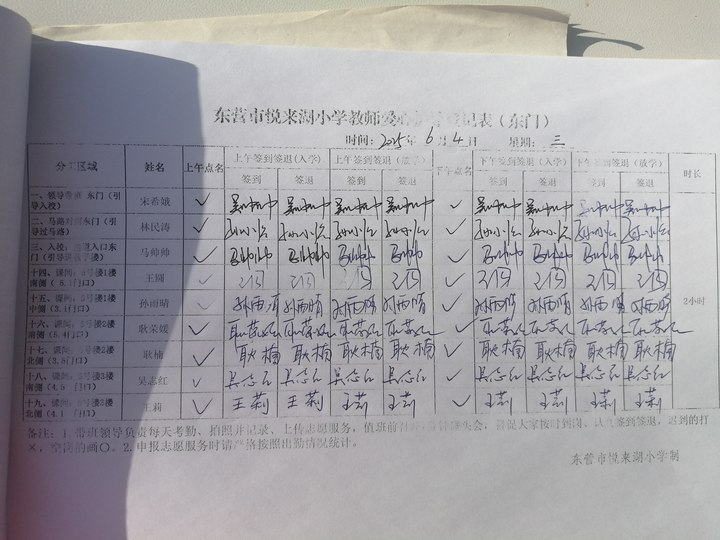 东营市悦来湖小学教师爱心 登记表（东门）
时间：2025年 6月 4日 星期：三
分工区域 姓名 上午点名 上午签到签退（入学） 上午签到签退（放学） 下午点名 下午签到签退（入学） 下午签到签退（放学） 时长
签到 签退 签到 签退 签到 签退 签到 签退
一、领导带班 东门（引导入校） 宋希娥 ✓ ✓
二、马路对面东门（引导过马路） 林民涛 ✓ ✓
三、入校： 入口东门（引导 ） 马帅帅 ✓ 马帅帅 马帅帅 马帅帅 马帅帅 ✓ 马帅帅 马帅帅 马帅帅 马帅帅
十四、课间： 号楼1楼南侧（ .1门口） 王圆 ✓ 王圆 王圆 王圆 王圆 ✓ 王圆 王圆 王圆 王圆
十五、课间： 号楼1楼中侧（3.1门口） 孙雨晴 ✓ 孙雨晴 孙雨晴 孙雨晴 孙雨晴 ✓ 孙雨晴 孙雨晴 孙雨晴 孙雨晴 2小时
十六、课间： 号楼2楼南侧（3.4门口） 耿荣媛 ✓ 耿荣媛 耿荣媛 耿荣媛 耿荣媛 ✓ 耿荣媛 耿荣媛 耿荣媛 耿荣媛
十七、课间： 号楼2楼北侧（3.8门口） 耿楠 ✓ 耿楠 耿楠 耿楠 耿楠 ✓ 耿楠 耿楠 耿楠 耿楠
十八、课间： 号楼3楼南侧（4.5门口） 吴志红 ✓ 吴志红 吴志红 吴志红 吴志红 ✓ 吴志红 吴志红 吴志红 吴志红
十九、课间： 号楼3楼北侧（4.1门口） 王莉 ✓ 王莉 王莉 王莉 王莉 ✓ 王莉 王莉 王莉 王莉
备注：1.带班领导负责每天考勤、拍照并记录、上传志愿服务，值班前 碰头会，督促大家按时到岗、认真签到签退，迟到的打
×，空岗的画〇。2.申报志愿服务时请严格按照出勤情况统计。
东营市悦来湖小学制